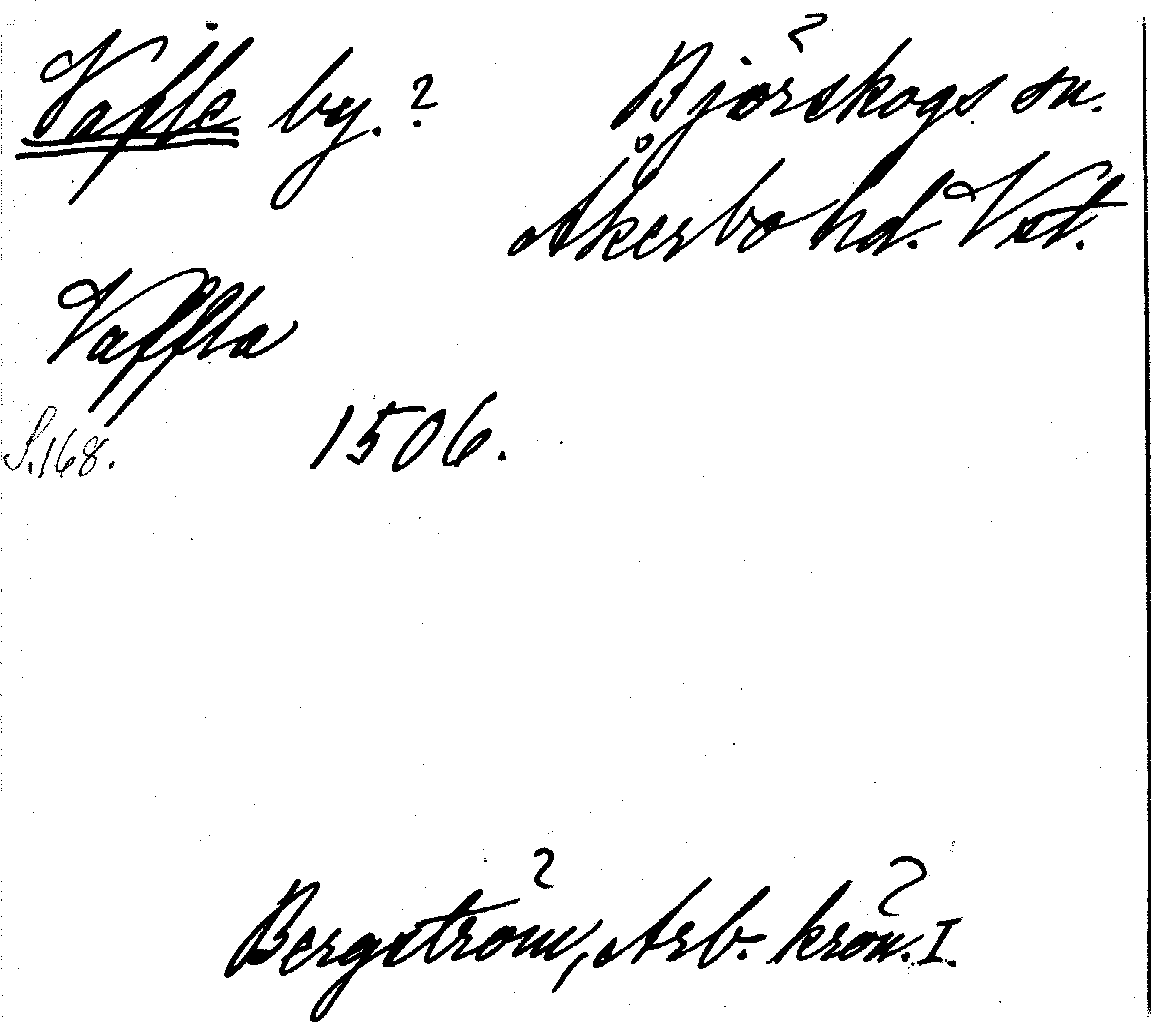 Vafle by.? Björskogs sn.
Åkerbo hd. Vst.
Vaffla
S.168. 1506.
Bergström, Arb. krön. I.